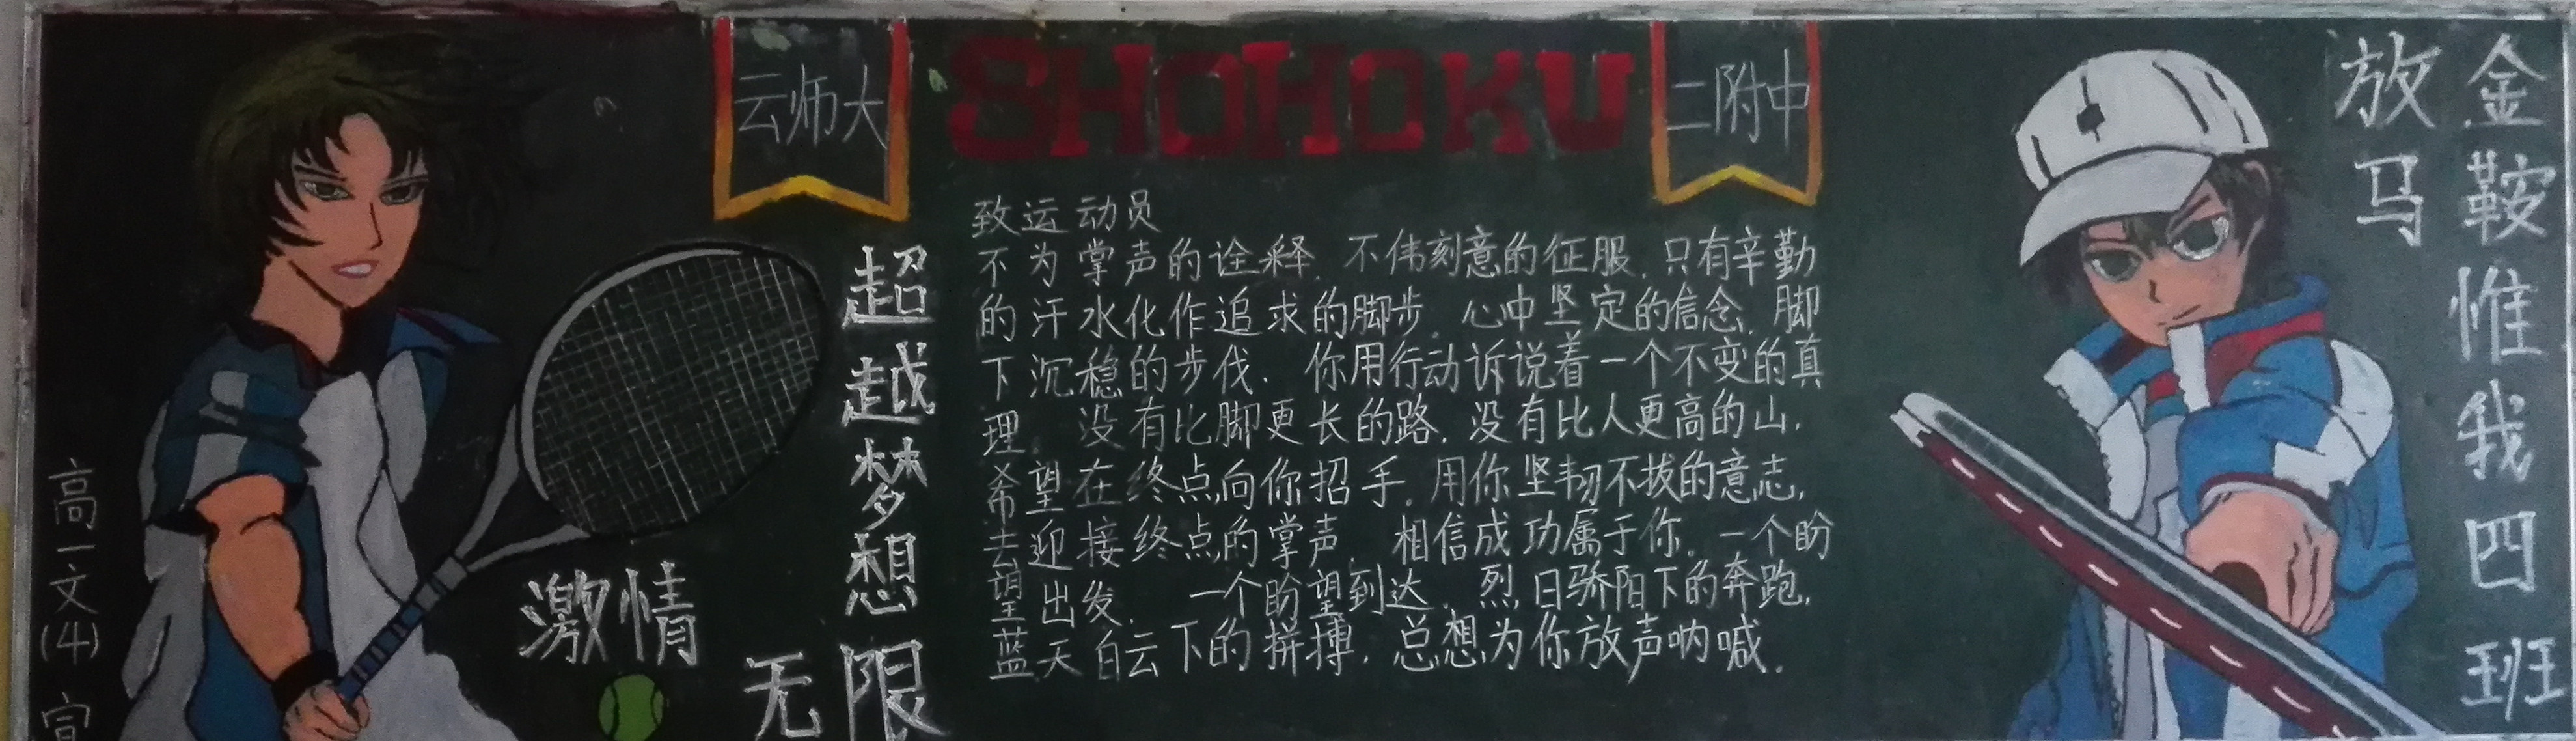 云师大
SHOHOKU
二附中
致运动员
不为掌声的诠释.不伟刻意的征服.只有辛勤
的汗水化作追求的脚步.心中坚定的信念.脚
下沉稳的步伐.你用行动诉说着一个不变的真
理.没有比脚更长的路.没有比人更高的山.
希望在终点向你招手.用你坚韧不拔的意志.
去迎接终点的掌声.相信成功属于你.一个盼
望出发.一个盼望到达.烈日骄阳下的奔跑.
蓝天白云下的拼搏.总想为你放声呐喊.
超越梦想
激情
无限
高一文(4)宣
金鞍惟我四班
放马